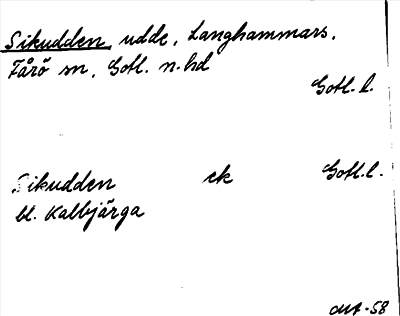 Sikudden, udde, Langhammars,
Fårö sn, Gotl. n. hd
Gotl. l.
Sikudden ek Gotl. l.
bl. Kalbjärga
-58